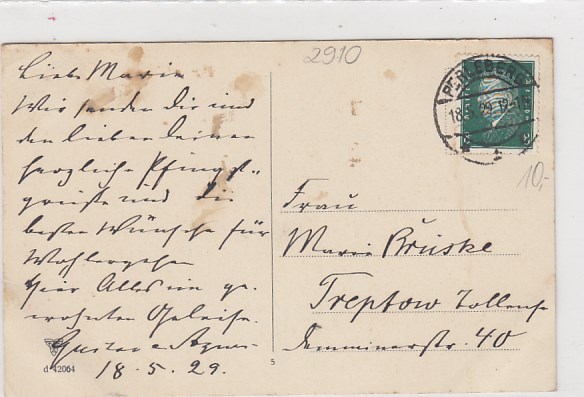 2910
PERLEBERG
18.5.29.12-1
10,-
Liebe Marie
Wir senden Dir und
den lieben Deinen
herzliche Pfingst-
grüße und die
besten Wünsche für
Wohlergehen
Hier Alles im ge-
wohnten Geleise.
Gustav u.
18.5.29.
d 42064
5
Frau
Marie Brüske
Treptow Tollense
Demminerstr. 40